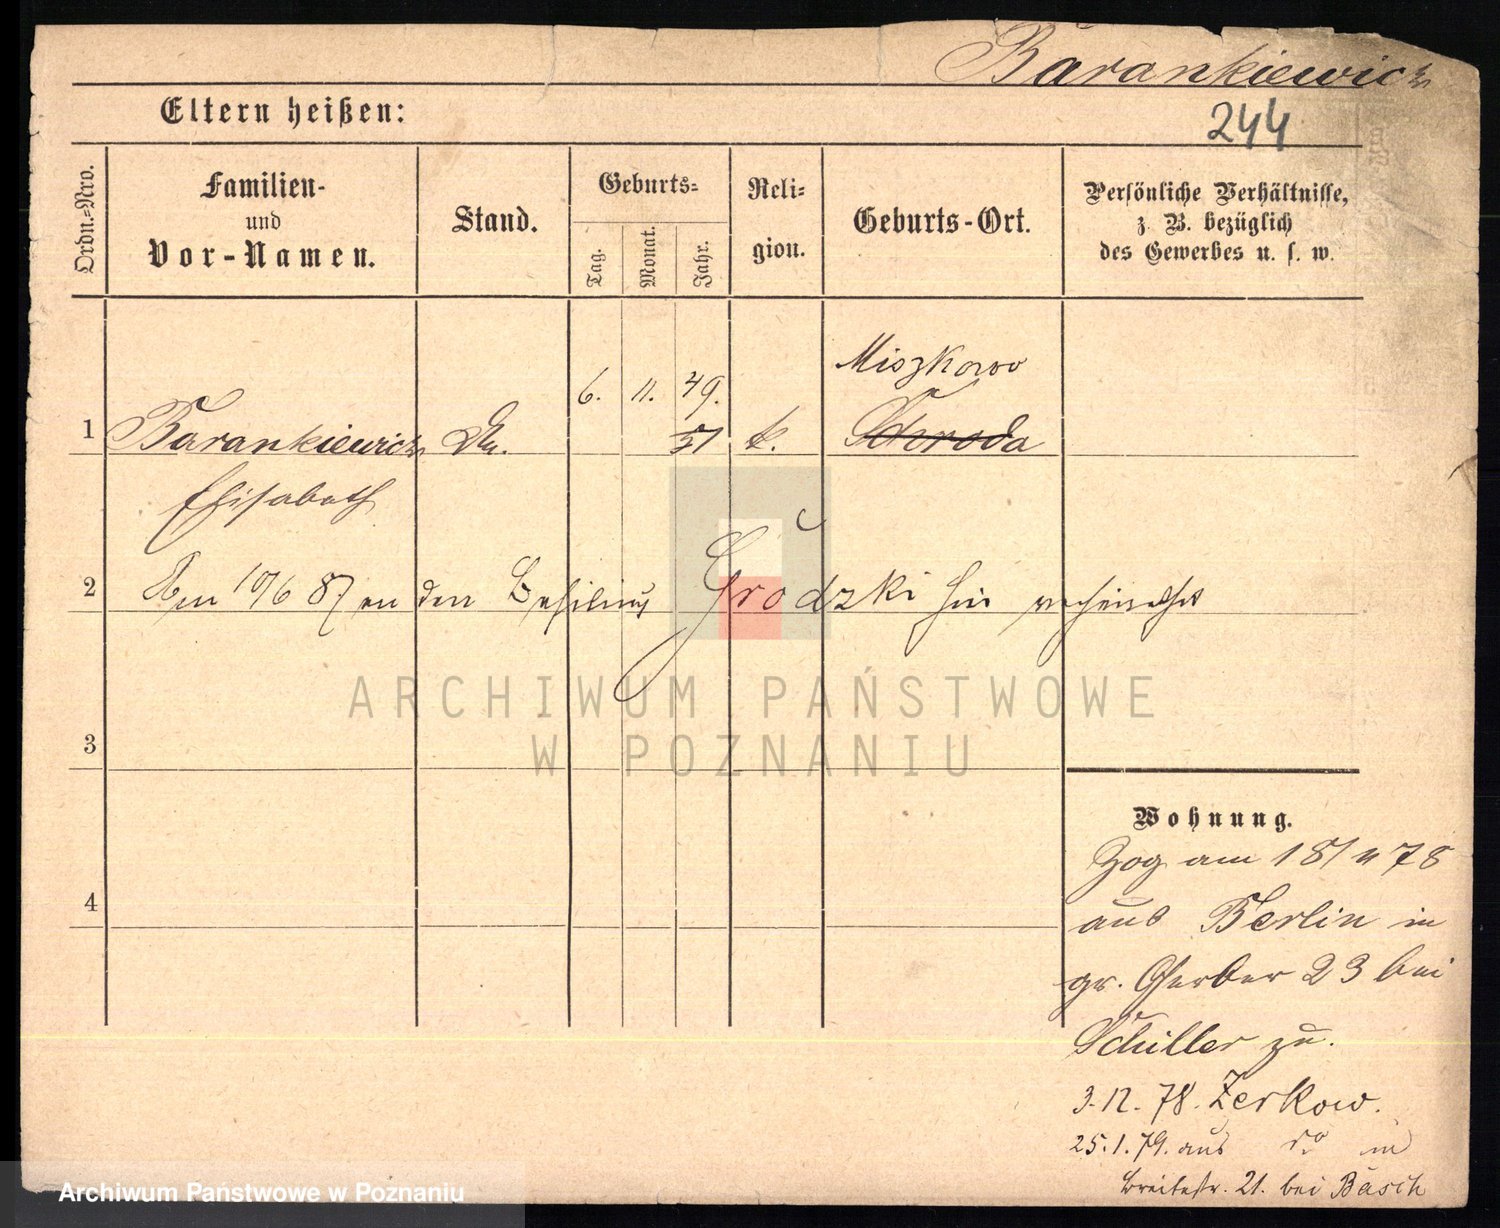 Barankiewicz
Eltern heißen:
244
Ordn.-Nro.
Familien-
und
Vor-Namen.
Stand.
Geburts-
Tag.
Monat.
Jahr.
Reli-
gion.
Geburts-Ort.
Persönliche Verhältnisse,
z. B. bezüglich
des Gewerbes u. s. w.
Miszkowo
6. 11. 49.
1 Barankiewicz 51 k. Schroda
Elisabeth
2 Am 10/6 87 an den Basilius Grodzki hier verheirathet
ARCHIWUM PAŃSTWOWE
W POZNANIU
3
Wohnung.
Zog am 18/11 78
4
aus Berlin in
gr. Gerber 23 bei
Schiller zu.
3.12.78. Zerkow.
25.1.79. aus do in
Breitestr. 21. bei Basch
Archiwum Państwowe w Poznaniu